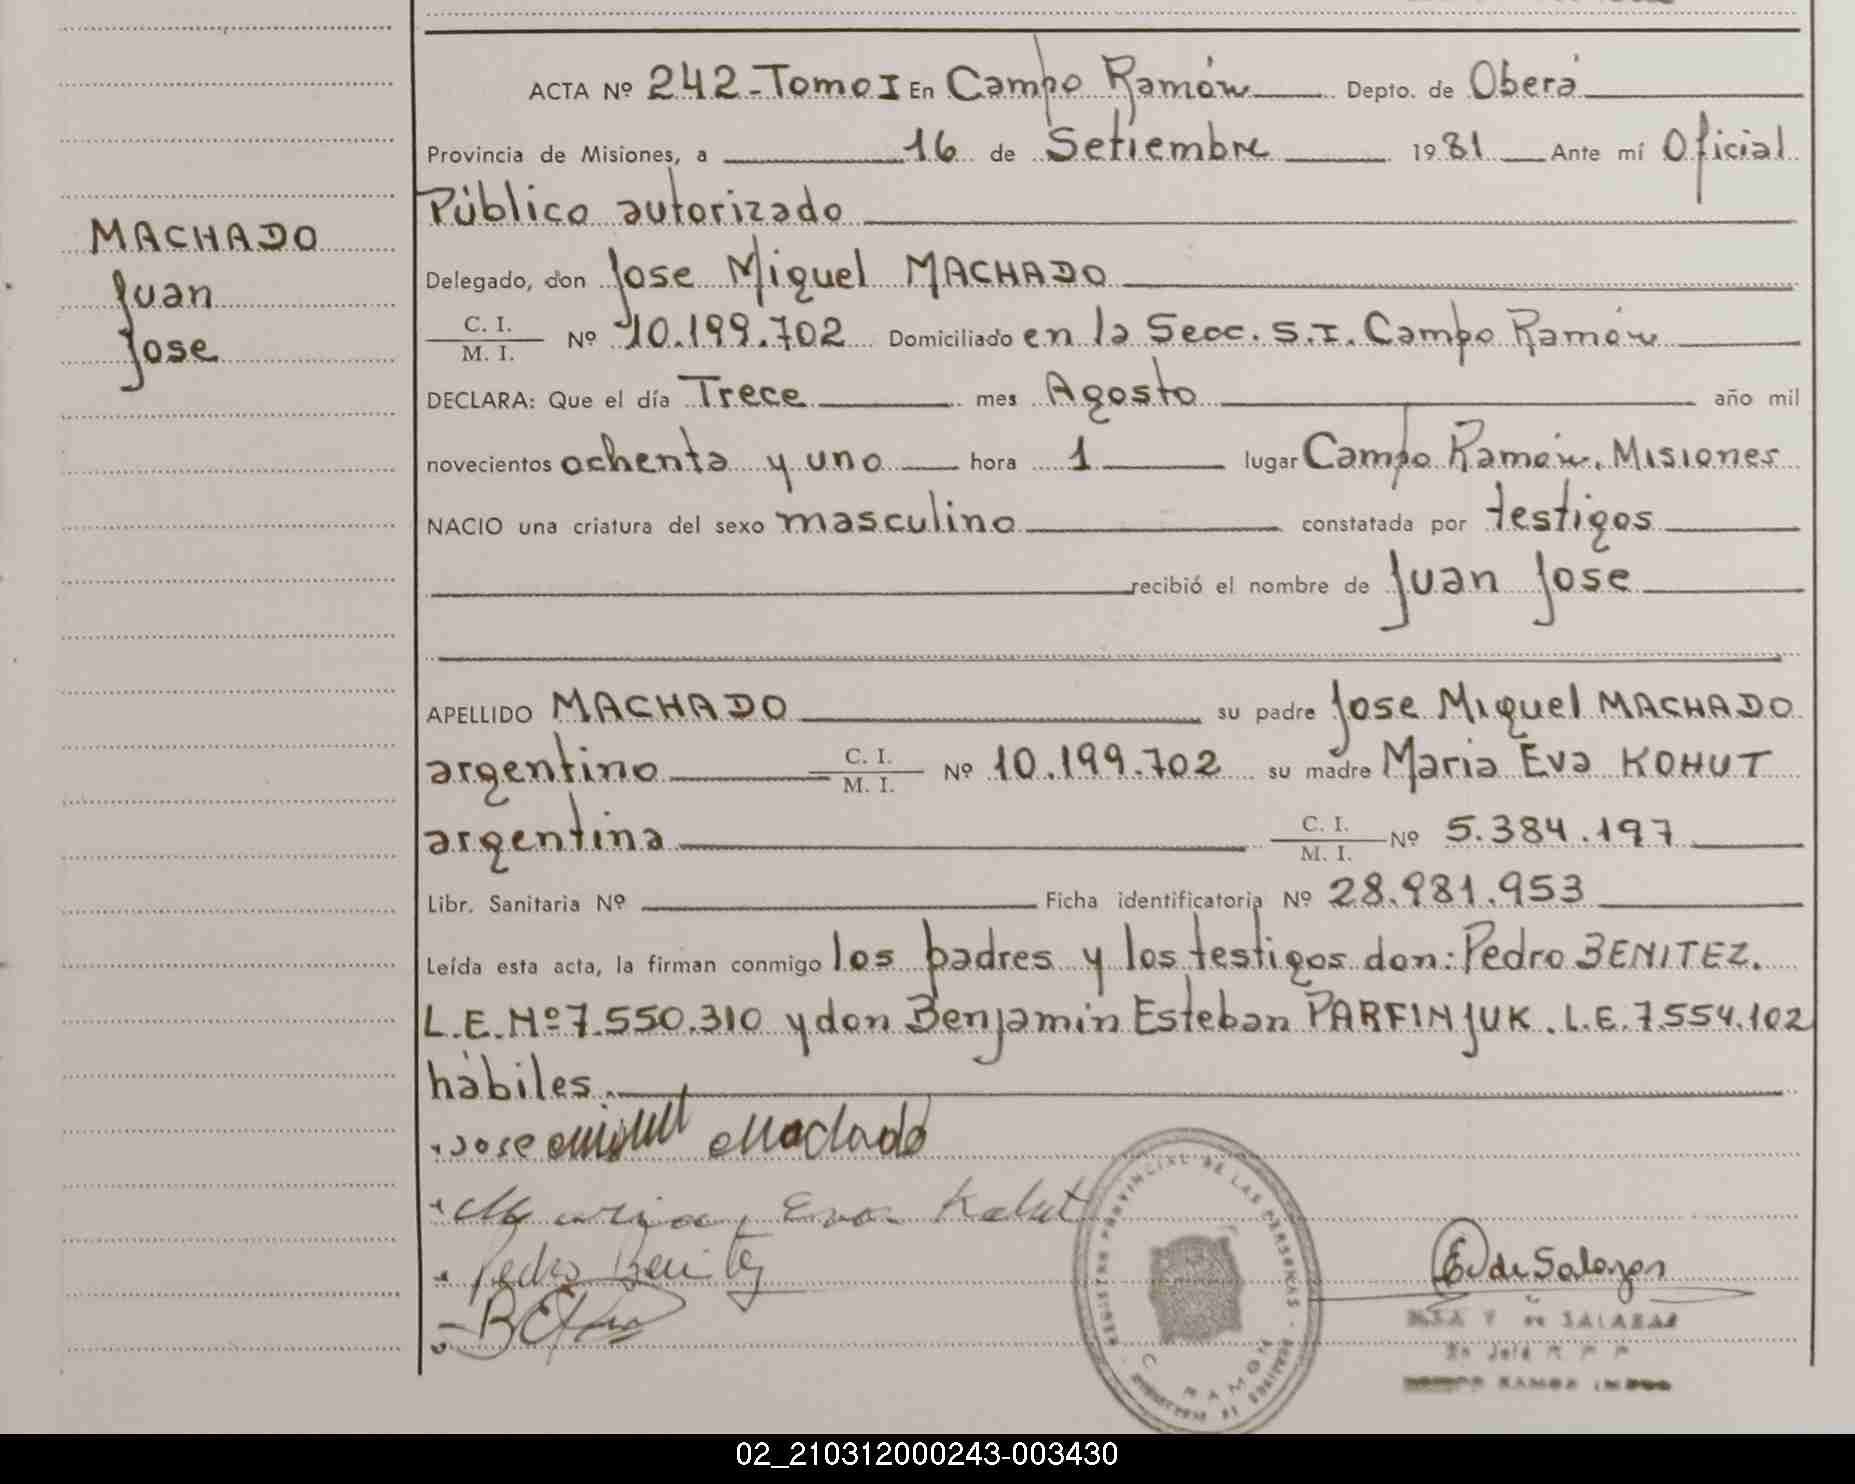 ACTA Nº 242-Tomo I En Campo Ramón Depto. de Oberá
Provincia de Misiones, a 16 de Setiembre 1981 Ante mí Oficial
Público autorizado
MACHADO
Juan
Jose
Delegado, don Jose Miguel MACHADO
C. I.
M. I. Nº 10.199.702 Domiciliado en la Secc. S.I. Campo Ramón
DECLARA: Que el día Trece mes Agosto año mil
novecientos ochenta y uno hora 1 lugar Campo Ramón. Misiones
NACIO una criatura del sexo masculino constatada por testigos
recibió el nombre de Juan Jose
APELLIDO MACHADO su padre Jose Miguel MACHADO
argentino C. I.
M. I. Nº 10.199.702 su madre Maria Eva KOHUT
argentina C. I.
M. I. Nº 5.384.197
Libr. Sanitaria Nº Ficha identificatoria Nº 28.981.953
Leída esta acta, la firman conmigo los padres y los testigos don: Pedro BENITEZ.
L.E.Nº 7.550.310 y don Benjamin Esteban PARFINJUK. L.E. 7.554.102
hábiles.
Jose Miguel Machado
Maria Eva Kohut
Pedro Benitez
E. de Salazar
DE SALABAR
REGISTRO PROVINCIAL DE LAS PERSONAS
C. RAMON
02_210312000243-003430